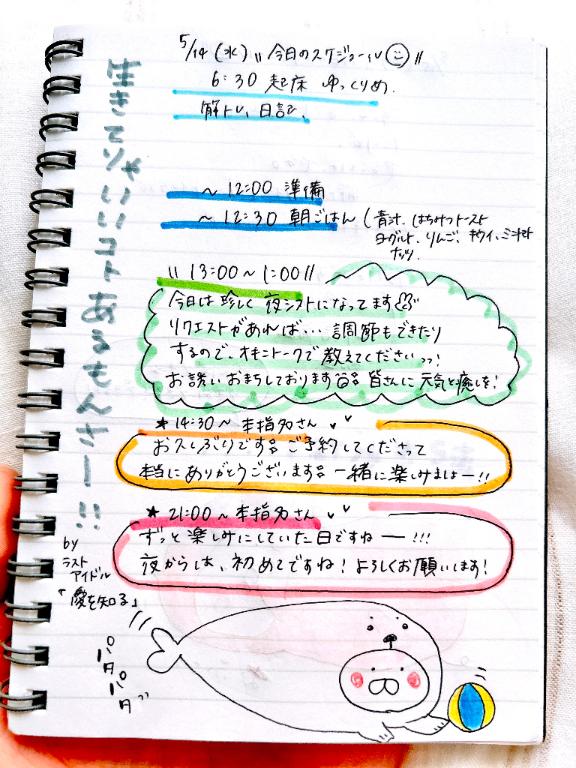 5/14 (水) 〃今日のスケジュール〃
6:30 起床 ゆっくりめ.
筋トレ、日記、
~12:00 準備
~12:30 朝ごはん (青汁、はちみつトースト
ヨーグルト、りんご、キウイ、ミニトマト
ナッツ.
〃13:00~1:00〃
今日は珍しく夜シフトになってます
リクエストがあれば… 調節もできたり
するので、オキニトークで教えてくださいっっ!
お誘いおまちしております 皆さんに元気と癒しを!
★14:30~ 本指名さん
お久しぶりです ご予約してくださって
本当にありがとうございます 一緒に楽しみましょー!!
★21:00~ 本指名さん
ずっと楽しみにしていた日ですねー!!!
夜からは、初めてですね! よろしくお願いします!
生きてりゃいいコトあるもんさー!!
by
ラスト
アイドル
「愛を知る」
パタ
パタ